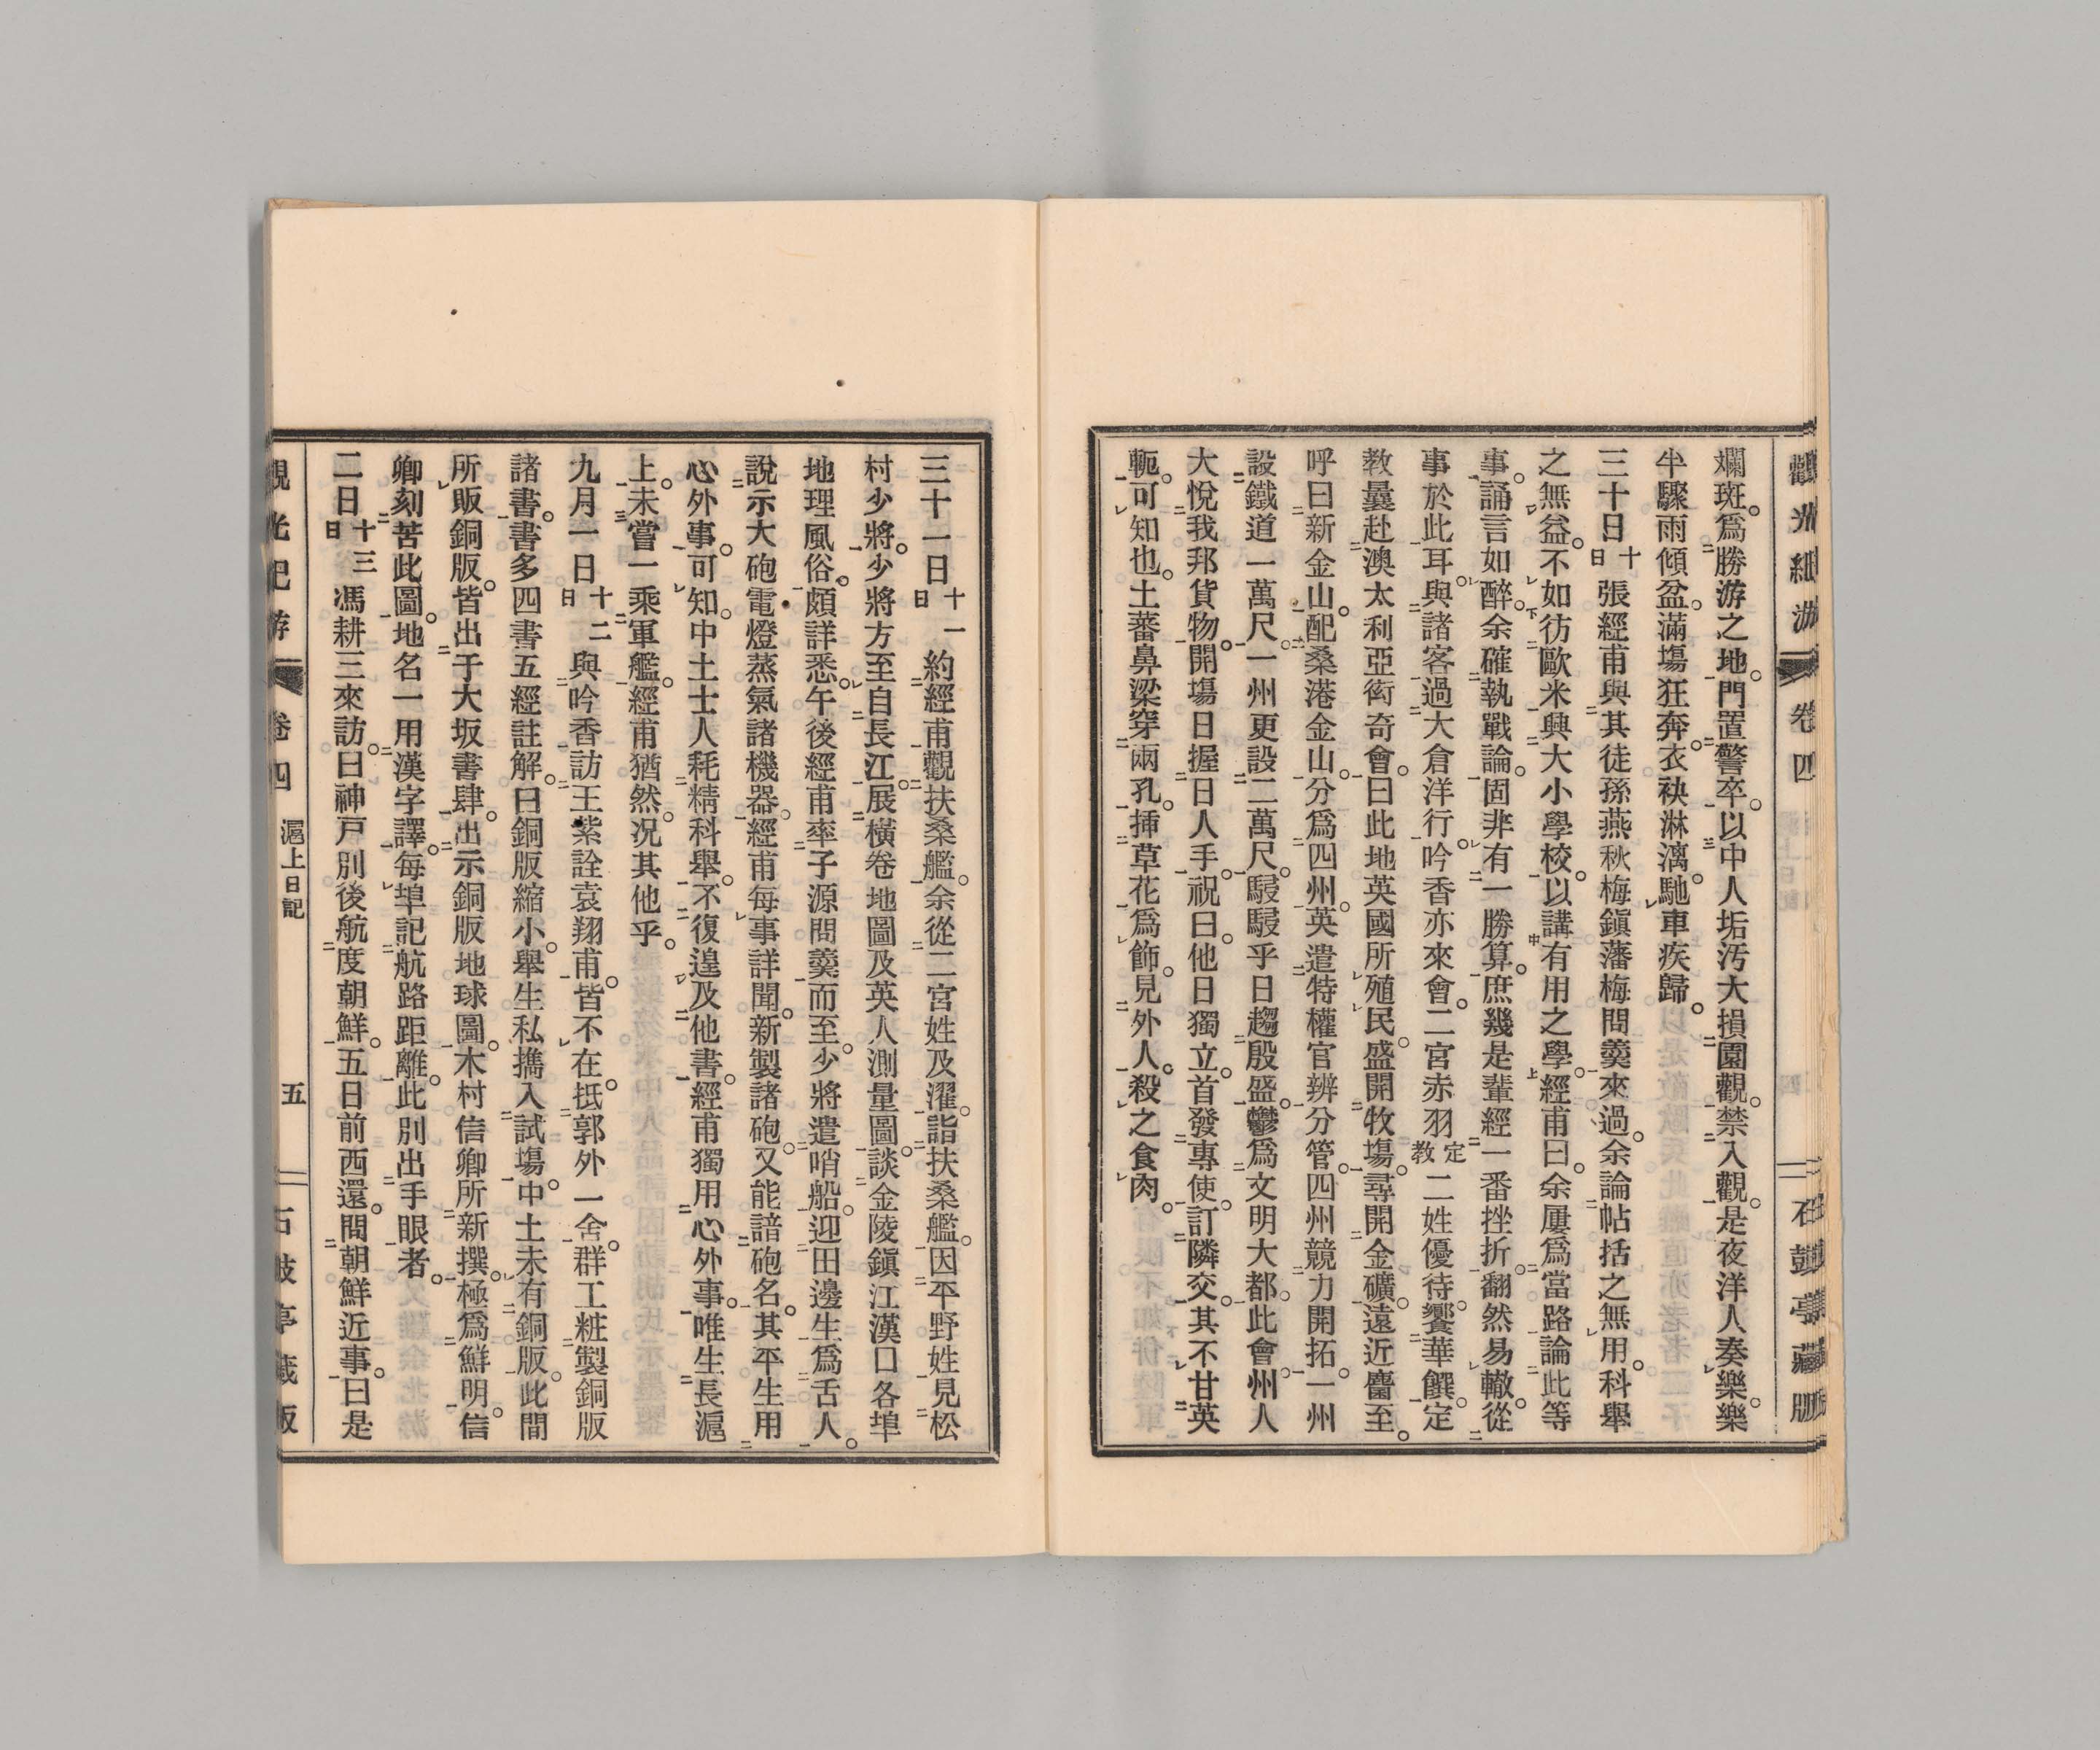 觀光紀游 卷四 石鼓亭藏版
斕斑。爲勝游之地。門置警卒。以中人垢汚大損園觀。禁入觀。是夜洋人奏樂。樂
半驟雨傾盆。滿塲狂奔。衣袂淋漓。馳車疾歸。
三十日十日 張經甫與其徒孫燕秋梅鎭藩梅問羹來過。余論帖括之無用。科舉
之無益。不如彷歐米興大小學校。以講有用之學。經甫曰。余屢爲當路論此等
事。誦言如醉。余確執戰論。固非有一勝算。庶幾是輩經一番挫折。翻然易轍。從
事於此耳。與諸客過大倉洋行。吟香亦來會。二宮赤羽定教二姓優待。饗華饌。定
教曩赴澳太利亞衒奇會。曰此地英國所殖民。盛開牧塲。尋開金礦。遠近麕至。
呼曰新金山。配桑港金山。分爲四州。英遣特權官辨分管。四州競力開拓。一州
設鐵道一萬尺。一州更設二萬尺。駸駸乎日趨殷盛。鬱爲文明大都。此會。州人
大悅我邦貨物。開塲日握日人手。祝曰。他日獨立。首發專使。訂隣交。其不甘英
軛。可知也。土蕃鼻梁穿兩孔。挿草花爲飾。見外人。殺之食肉。
三十一日十一日 約經甫觀扶桑艦。余從二宮姓及濯。詣扶桑艦。因平野姓見松
村少將。少將方至自長江。展橫卷地圖及英人測量圖。談金陵鎭江漢口各埠
地理風俗。頗詳悉。午後經甫率子源問羹而至。少將遣哨船。迎田邊生爲舌人。
說示大砲電燈蒸氣諸機器。經甫每事詳聞。新製諸砲。又能諳砲名。其平生用
心外事。可知。中土士人耗精科舉。不復遑及他書。經甫獨用心外事。唯生長滬
上。未嘗一乘軍艦。經甫猶然。况其他乎。
九月一日十二日 與吟香訪王紫詮袁翔甫。皆不在。抵郭外一舍。群工粧製銅版
諸書。書多四書五經註解。曰銅版縮小。舉生私攜入試塲。中土未有銅版。此間
所販銅版。皆出于大坂書肆。出示銅版地球圖。木村信卿所新撰。極爲鮮明。信
卿刻苦此圖。地名一用漢字譯。每埠記航路距離。此別出手眼者。
二日十三日 馮耕三來訪。曰神戶別後航度朝鮮。五日前西還。問朝鮮近事。曰是
觀光紀游 卷四 滬上日記 五 石鼓亭藏版